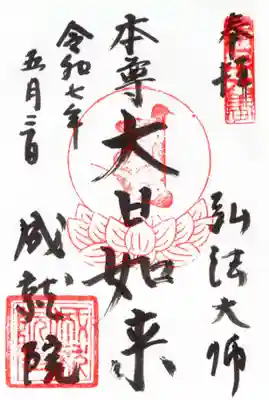 奉拝
弘法大師
本尊
大日如来
令和七年
五月二日
成就院